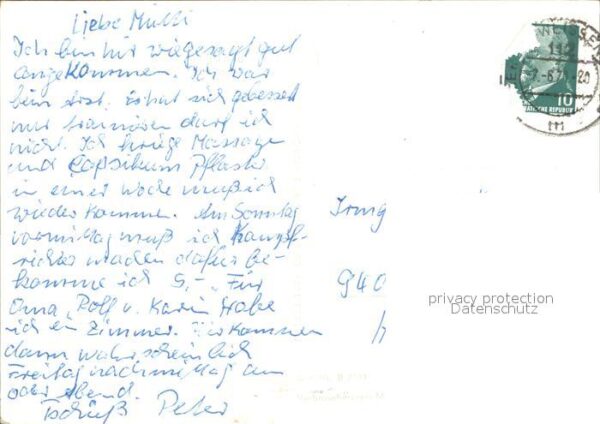 Liebe Mutti
Ich bin hir wiegesagt gut
angekommen. Ich war
beim Arzt. Es hat sich gebessert
nur trainieren darf ich
nicht. Ich kriege Massage
und Capsikum Pflaster
in einer Woche muß ich
wieder kommen. Am Sonntag
vormittag muß ich Kampf-
richter machen dafür be-
komme ich 5,- Für
Oma, Rolf u. Karin habe
ich ein Zimmer. Sie kommen
dann wahrscheinlich
Freitag nachmittag an
oder Abend.
Tschüß Peter
Irmg
940
privacy protection
Datenschutz
10
DEUTSCHE REPUBLIK